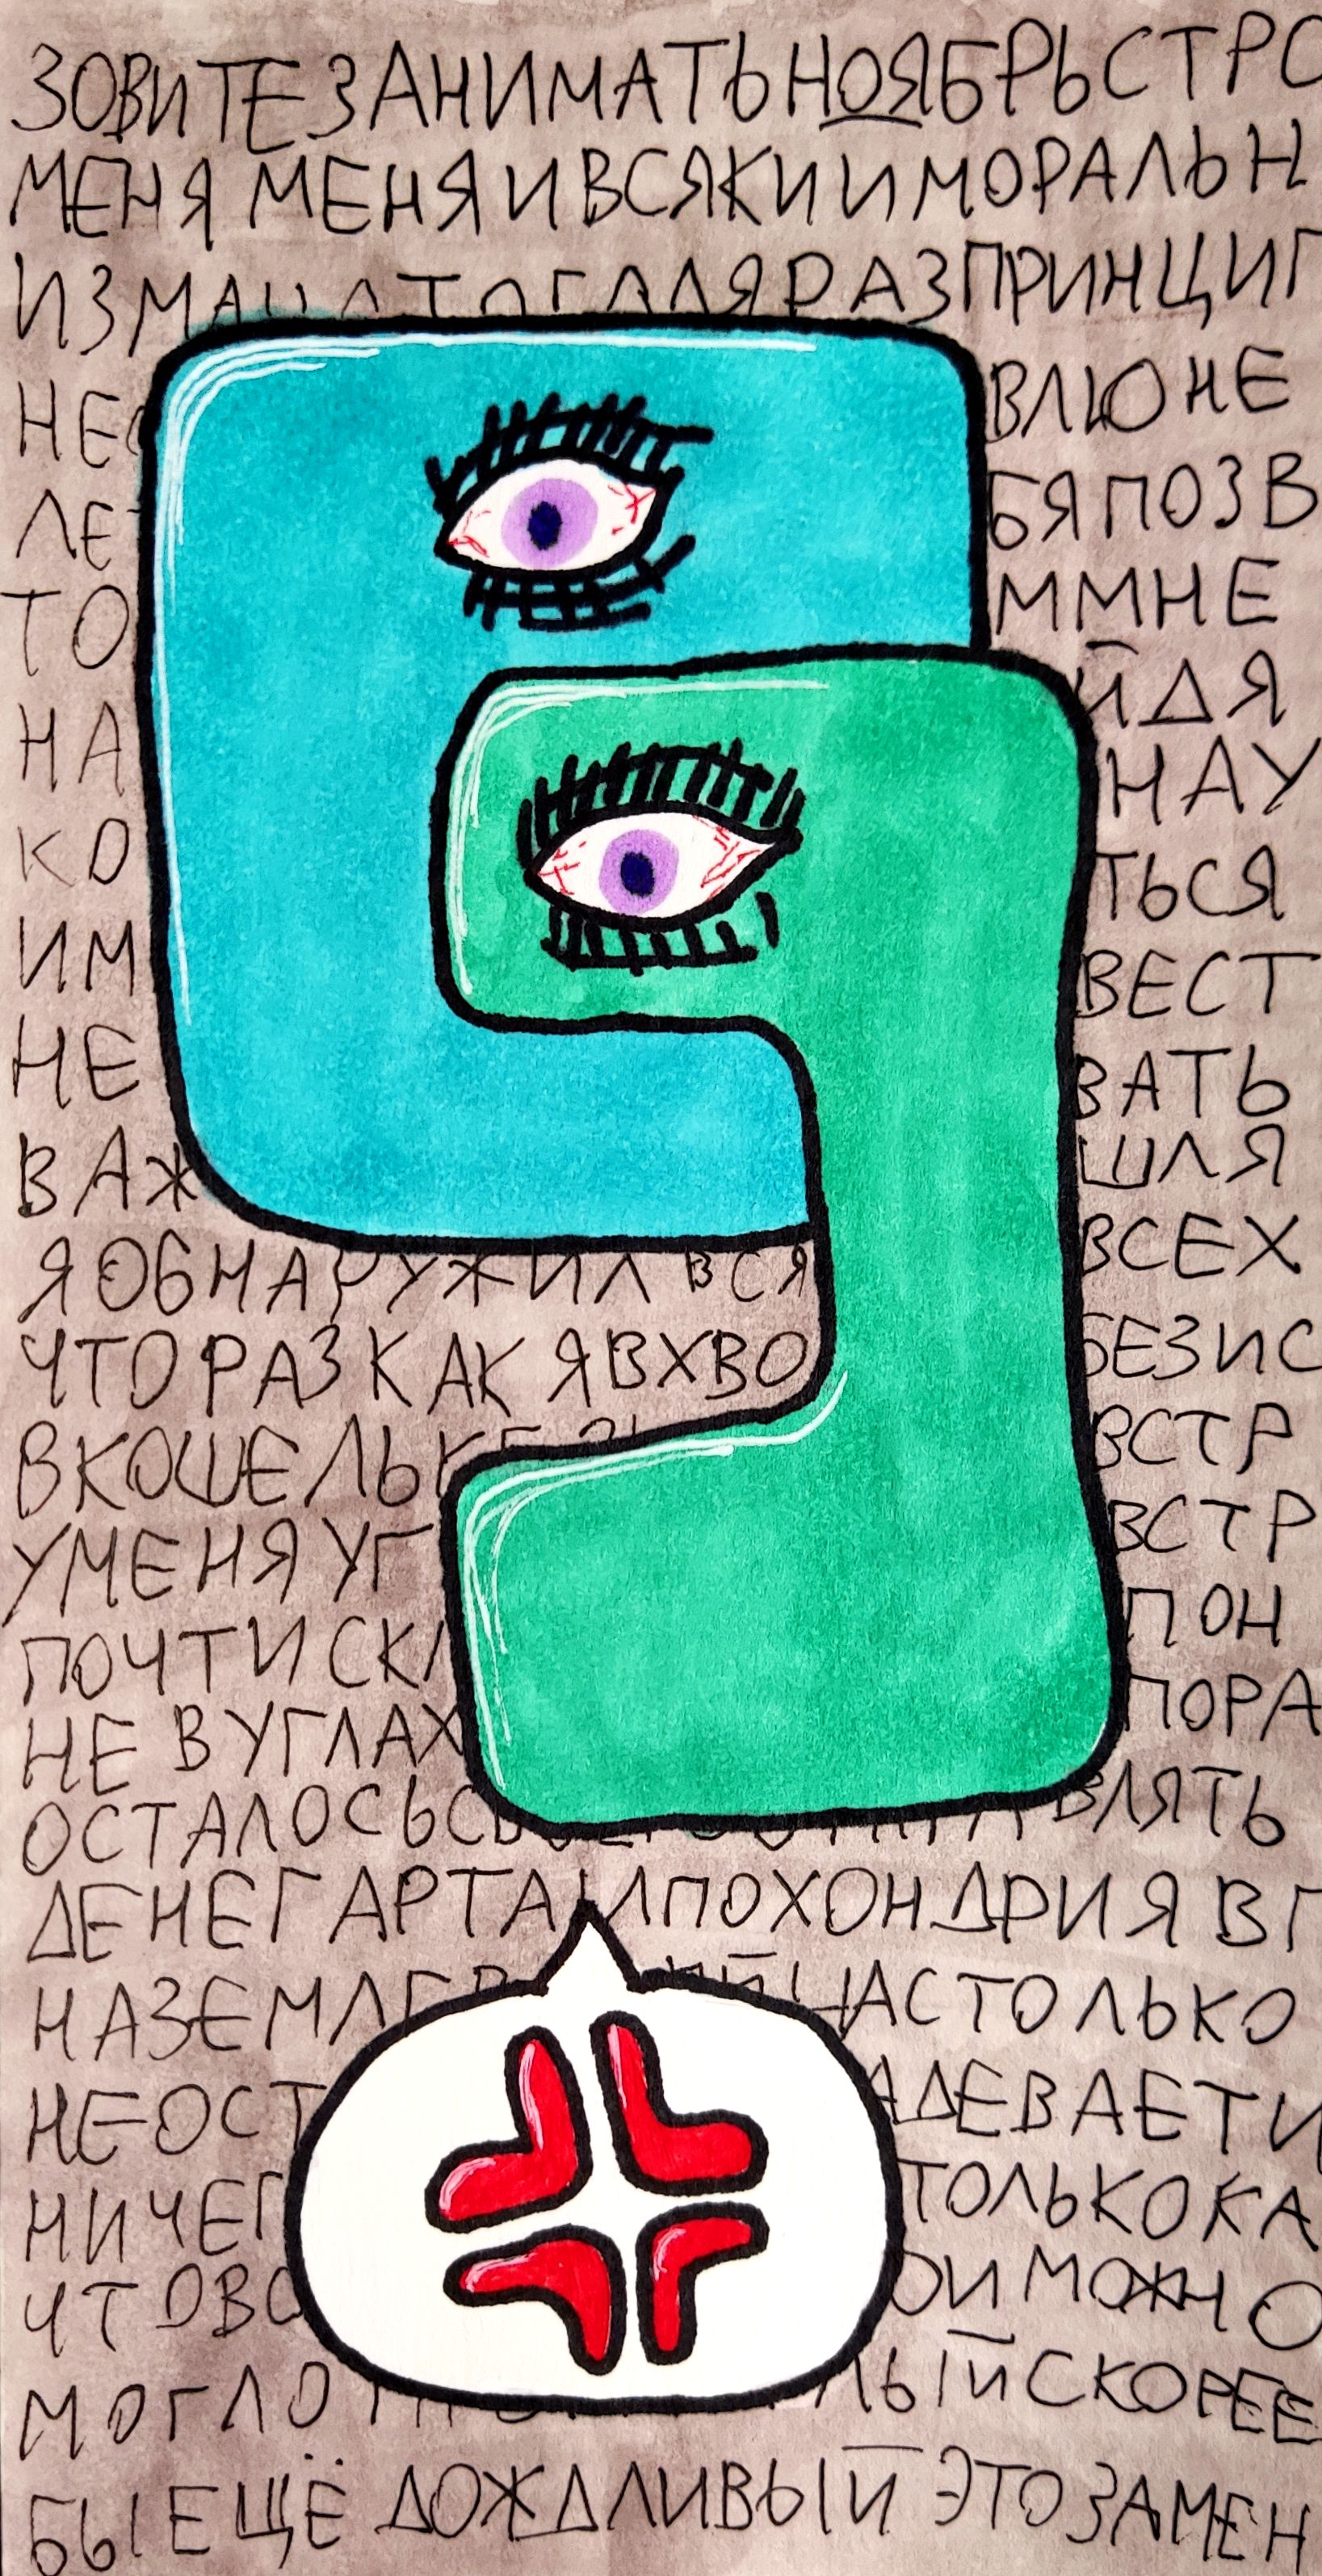 ЗОВИТЕЗАНИМАТЬНОЯБРЬСТРО
МЕНЯ МЕНЯИВСЯКИИМОРАЛЬН
РАЗПРИНЦИП
НЕ ВЛЮНЕ
ЛЕ БЯПОЗВ
ТО ММНЕ
НА ЙДЯ
КО НАУ
ИМ ТЬСЯ
НЕ ВЕСТ
ВАЖ ВАТЬ
ШЛЯ
ЯОБНАРУЖИЛВСЯ ВСЕХ
ЧТОРАЗКАКЯВХВО БЕЗИС
ВКОШЕЛЬКЕ ВСТР
УМЕНЯУГ ВСТР
ПОЧТИСКЛ ПОН
НЕВУГЛАХ ПОРА
ОСТАЛОСЬ ВЛЯТЬ
ДЕНЕГАРТА ИПОХОНДРИЯВГ
НАЗЕМЛЕ НАСТОЛЬКО
НЕОСТ АДЕВАЕТИ
НИЧЕГ ТОЛЬКОКА
ЧТОВО ОИМОЖНО
МОГЛО ЛЫЙСКОРЕЕ
БЫЕЩЁ ДОЖДЛИВЫЙ ЭТОЗАМЕН